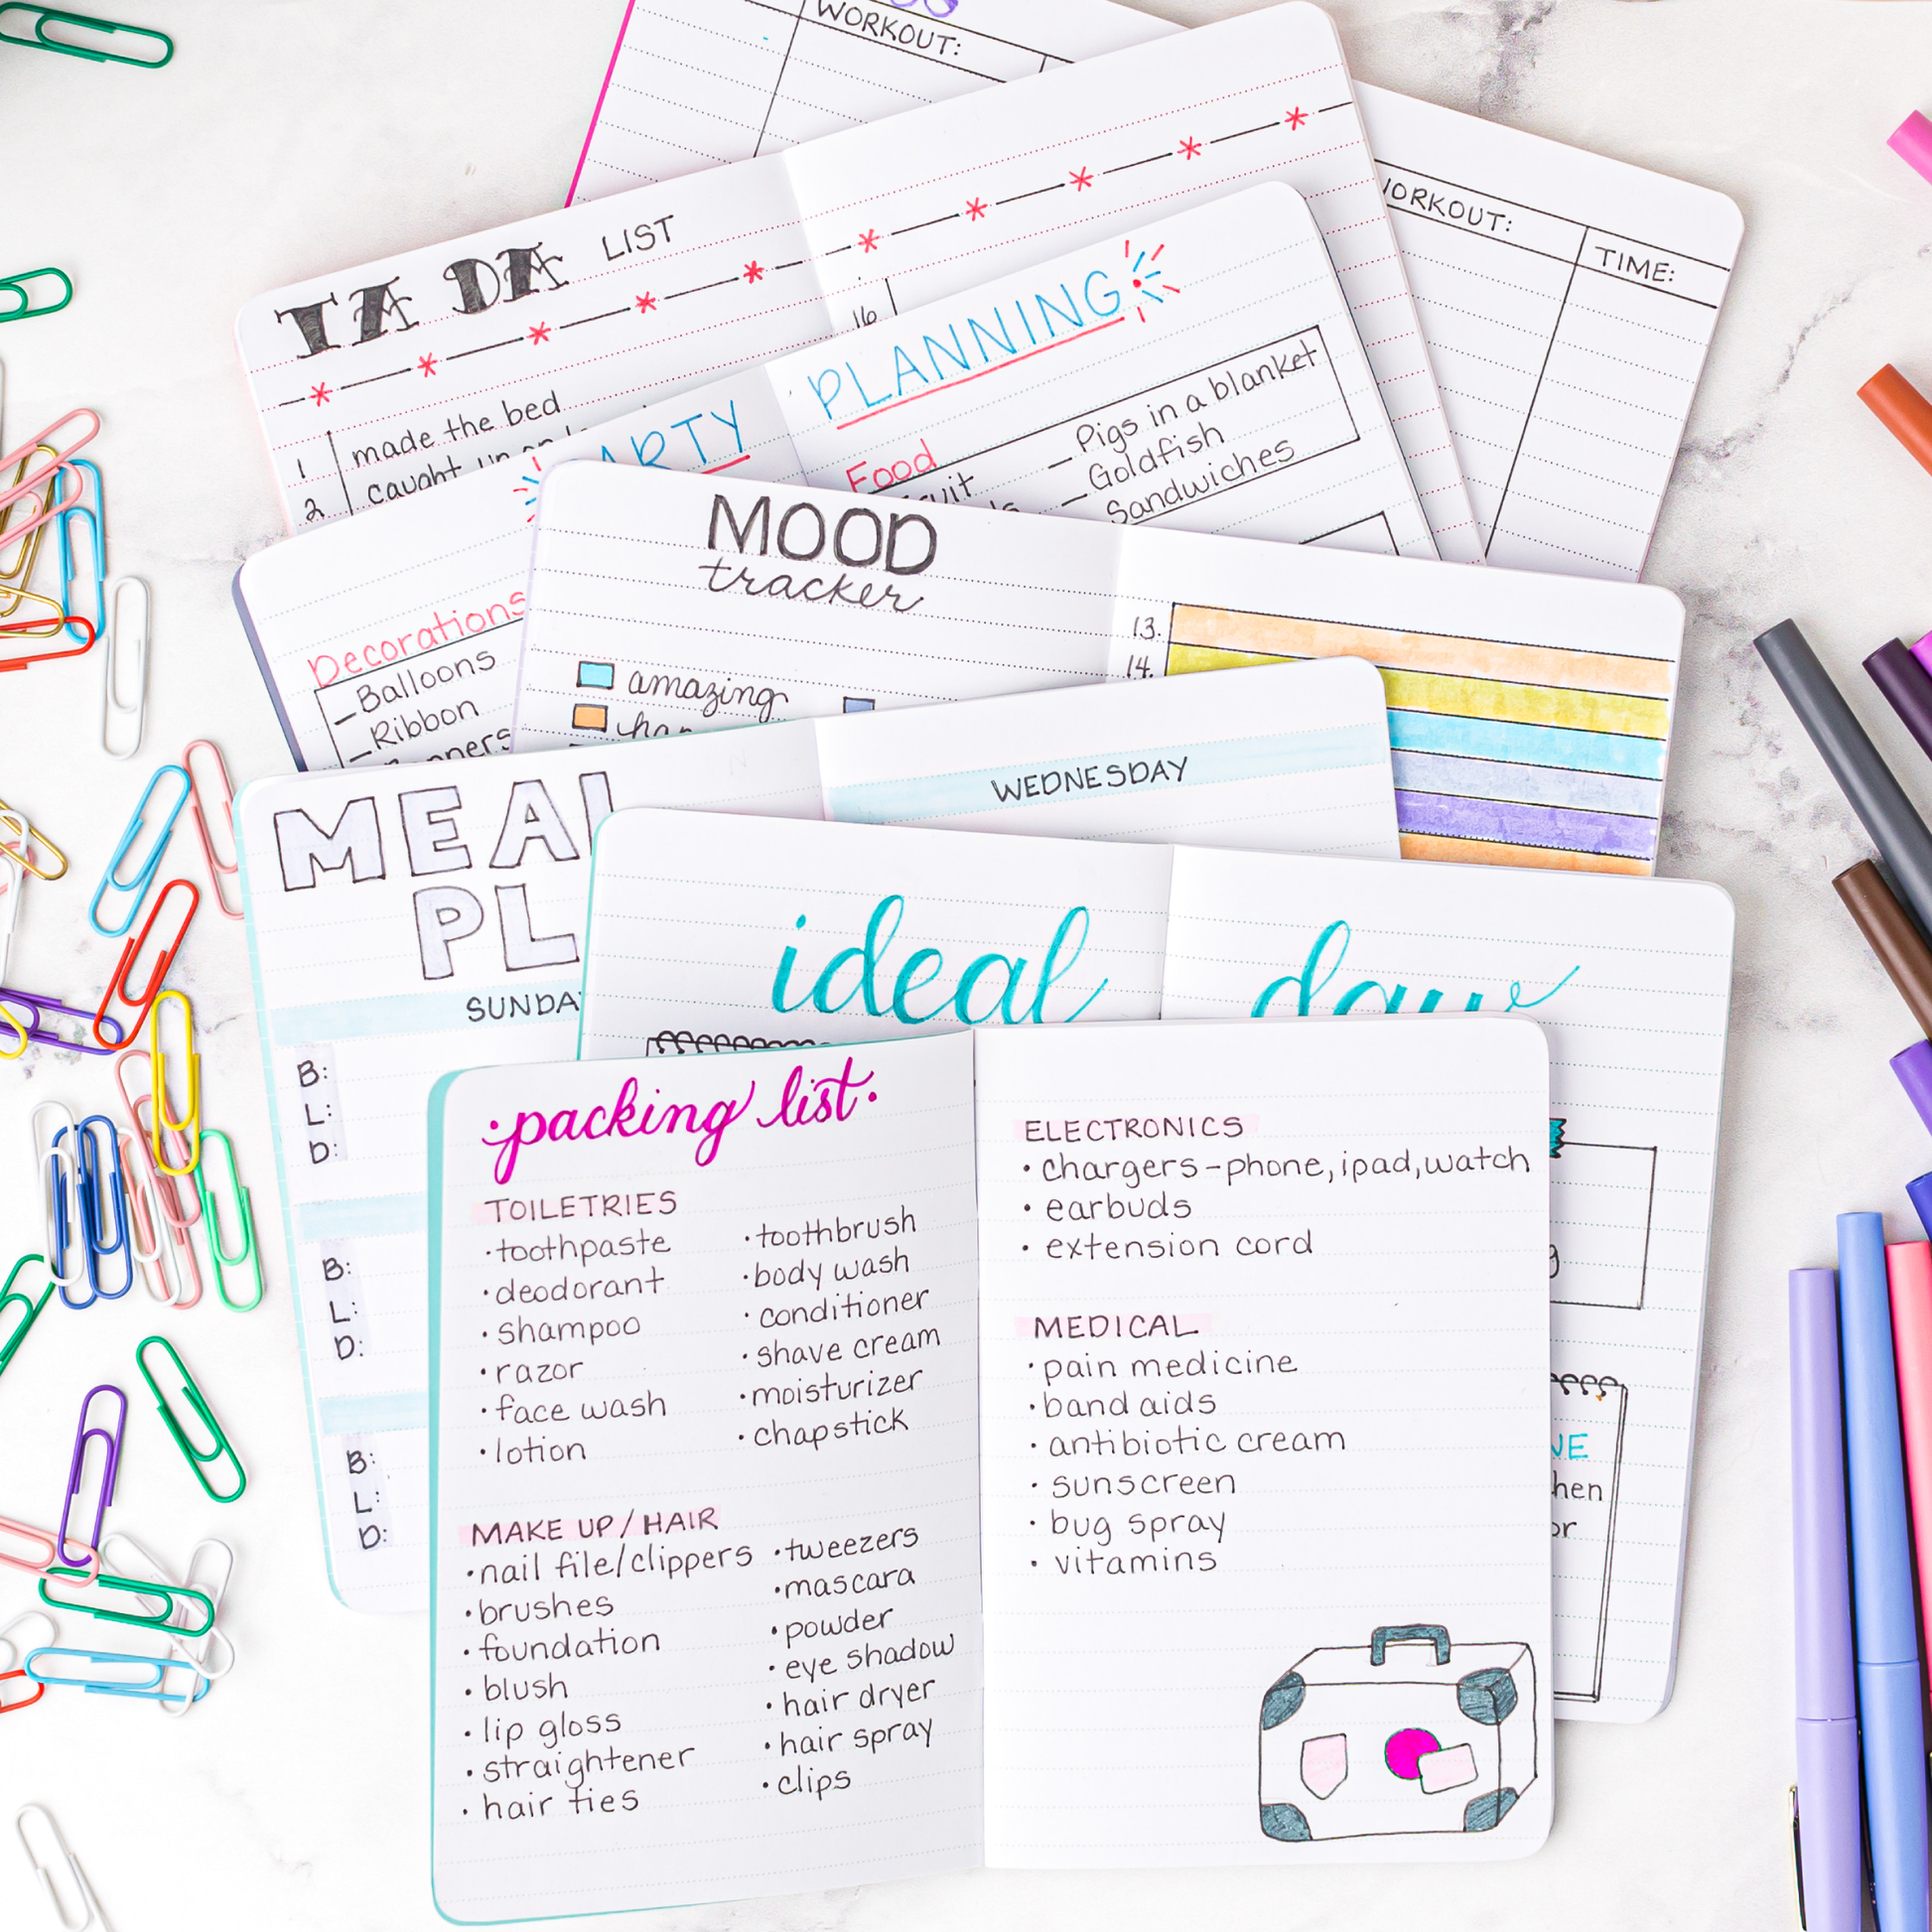 WORKOUT:
WORKOUT:
TIME:
TA DA LIST
1 made the bed
2 caught up on
16
PARTY PLANNING
Food
Pigs in a blanket
Goldfish
Sandwiches
Decorations
– Balloons
– Ribbon
MOOD
tracker
amazing
13.
14.
MEAL
PL
WEDNESDAY
SUNDA
B:
L:
D:
B:
L:
D:
B:
L:
D:
ideal day
NE
hen
or
g
·packing list·
TOILETRIES
· toothpaste
· deodorant
· shampoo
· razor
· face wash
· lotion
· toothbrush
· body wash
· conditioner
· shave cream
· moisturizer
· chapstick
MAKE UP/HAIR
· nail file/clippers
· brushes
· foundation
· blush
· lip gloss
· straightener
· hair ties
· tweezers
· mascara
· powder
· eye shadow
· hair dryer
· hair spray
· clips
ELECTRONICS
· chargers – phone, ipad, watch
· earbuds
· extension cord
MEDICAL
· pain medicine
· band aids
· antibiotic cream
· sunscreen
· bug spray
· vitamins